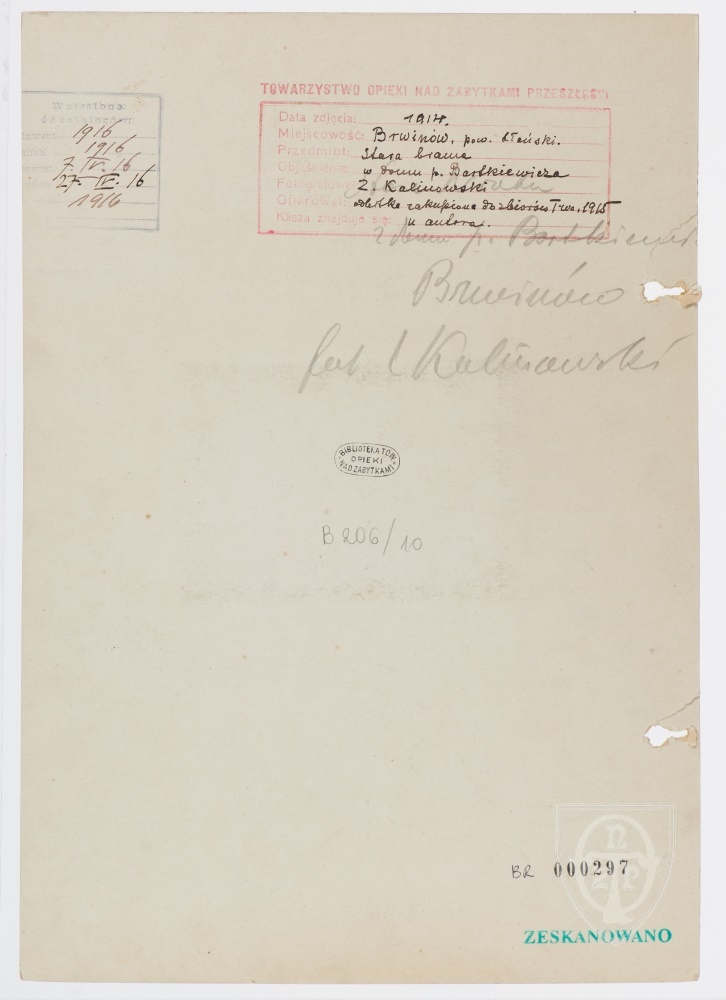 Wniesiono
do katalogów:
1916
1916
7. IV. 16
27. IV. 16
1916
TOWARZYSTWO OPIEKI NAD ZABYTKAMI PRZESZŁOŚCI
Data zdjęcia: 1914.
Miejscowość: Brwinów, pow. błoński.
Przedmiot: Stara brama
Objaśnienie: w domu p. Bartkiewicza
Fotografował: Z. Kalinowski
Ofiarował: odbitka zakupiona do zbiorów Twa. 1915
Klisza znajduje się: u autora.
z domu p. Bartkiewicza
Brwinów
fot. Kalinowski
BIBLIOTEKA TOW.
OPIEKI
NAD ZABYTKAMI
B 206/10
BR 000297
TOnZP
ZESKANOWANO